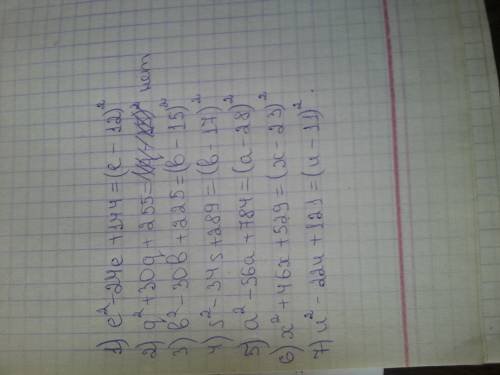 1) e²-24e+144=(e-12)²
2) q²+30q+255= нет
3) b²-30b+225=(b-15)²
4) s²-34s+289=(b-17)²
5) a²-56a+784=(a-28)²
6) x²+46x+529=(x-23)²
7) u²-22u+121=(u-11)².